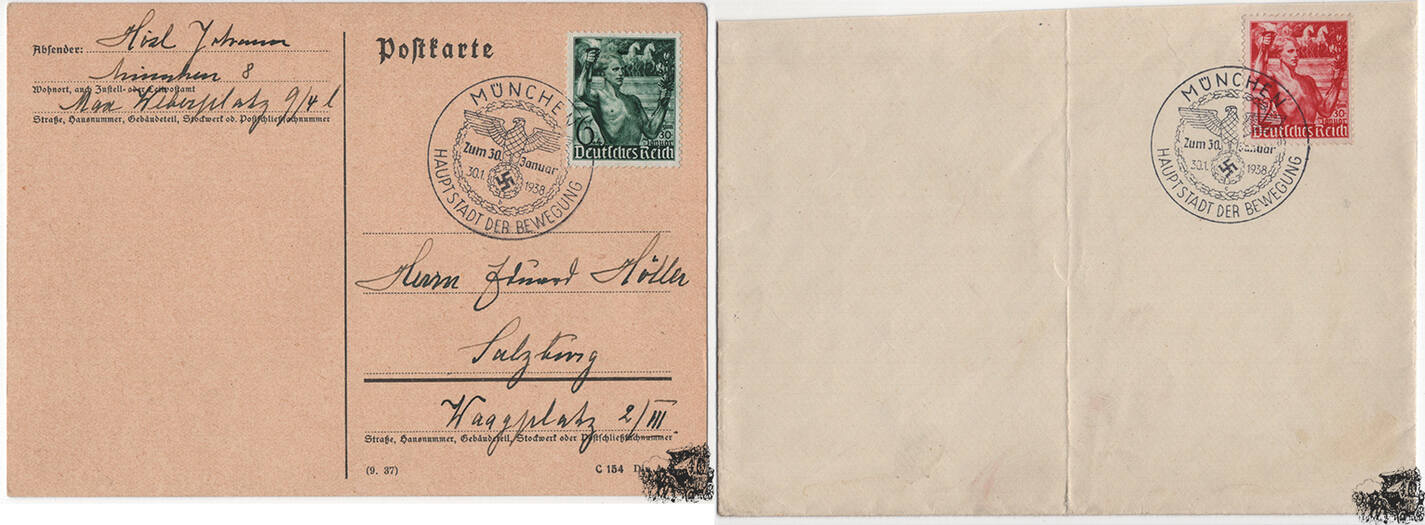 Absender: Hisl Johann
München 8
Wohnort, auch Zustell- oder Leitpostamt
Max Weberplatz 9/4 l
Straße, Hausnummer, Gebäudeteil, Stockwerk od. Postschließfachnummer
Postkarte
6
30.
Januar
Deutsches Reich
MÜNCHEN
Zum 30. Januar
30.1. 1938
HAUPTSTADT DER BEWEGUNG
Herrn Eduard Höller
Salzburg
Waagplatz 2/III
Straße, Hausnummer, Gebäudeteil, Stockwerk oder Postschließfachnummer
(9. 37)
C 154 Di
12
30.
Januar
Deutsches Reich
MÜNCHEN
Zum 30. Januar
30.1. 1938
HAUPTSTADT DER BEWEGUNG